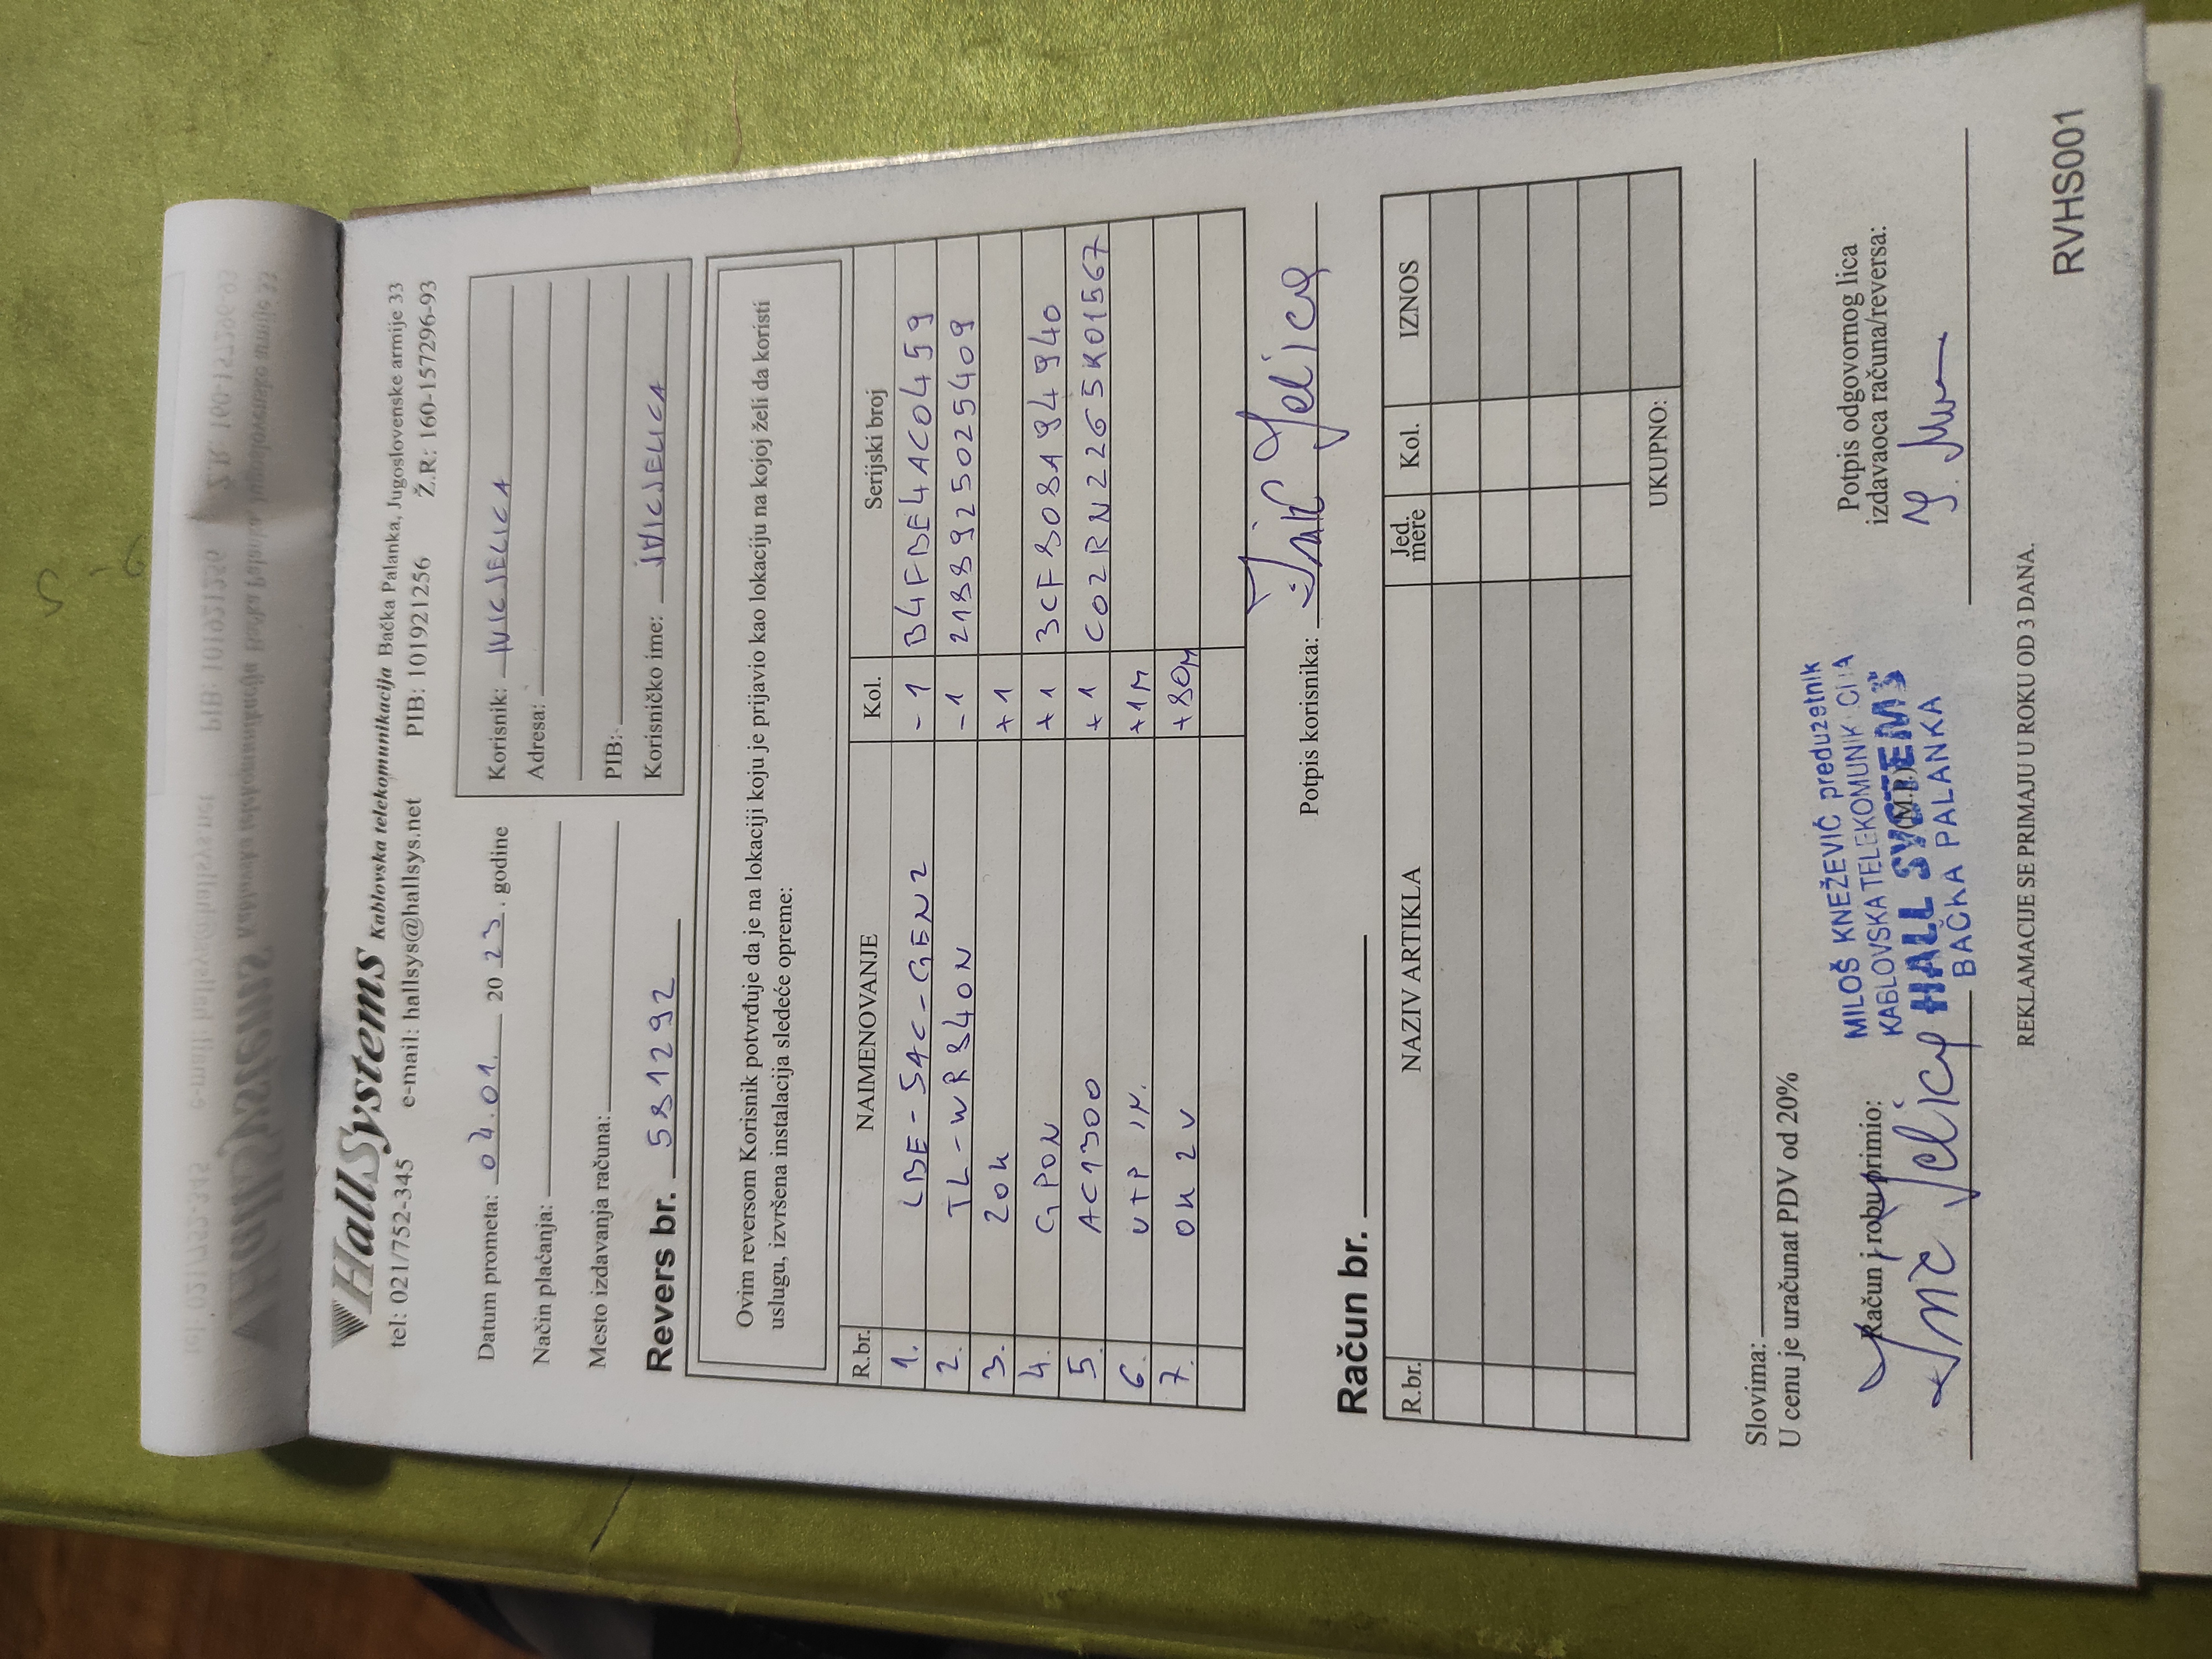 HallSystems Kablovska telekomunikacija Bačka Palanka, Jugoslovenske armije 33
tel: 021/752-345 e-mail: hallsys@hallsys.net PIB: 101921256 Ž.R: 160-157296-93
Datum prometa: 04.01. 2023. godine
Način plaćanja:
Mesto izdavanja računa:
Revers br. 581292
Korisnik: IVICJELICA
Adresa:
PIB:
Korisničko ime: IVICJELICA
Ovim reversom Korisnik potvrđuje da je na lokaciji koju je prijavio kao lokaciju na kojoj želi da koristi
uslugu, izvršena instalacija sledeće opreme:
R.br. NAIMENOVANJE Kol. Serijski broj
1. LBE-5AC-GEN2 -1 B4FBE4AC0459
2. TL-WR840N -1 2188925025409
3. ZOK +1
4. GPON +1 3CF808194940
5. AC1300 +1 C02RN2265K01567
6. UTP IN. +1M
7. OK 2V +80M
Potpis korisnika: Ivić Jelica
Račun br.
R.br. NAZIV ARTIKLA Jed. mere Kol. IZNOS
UKUPNO:
Slovima:
U cenu je uračunat PDV od 20%
Račun i robu primio:
Ivić Jelica
MILOŠ KNEŽEVIĆ preduzetnik
KABLOVSKA TELEKOMUNIKACIJA
HALL SYSTEMS
(M.P.)
BAČKA PALANKA
Potpis odgovornog lica
izdavaoca računa/reversa:
REKLAMACIJE SE PRIMAJU U ROKU OD 3 DANA.
RVHS001